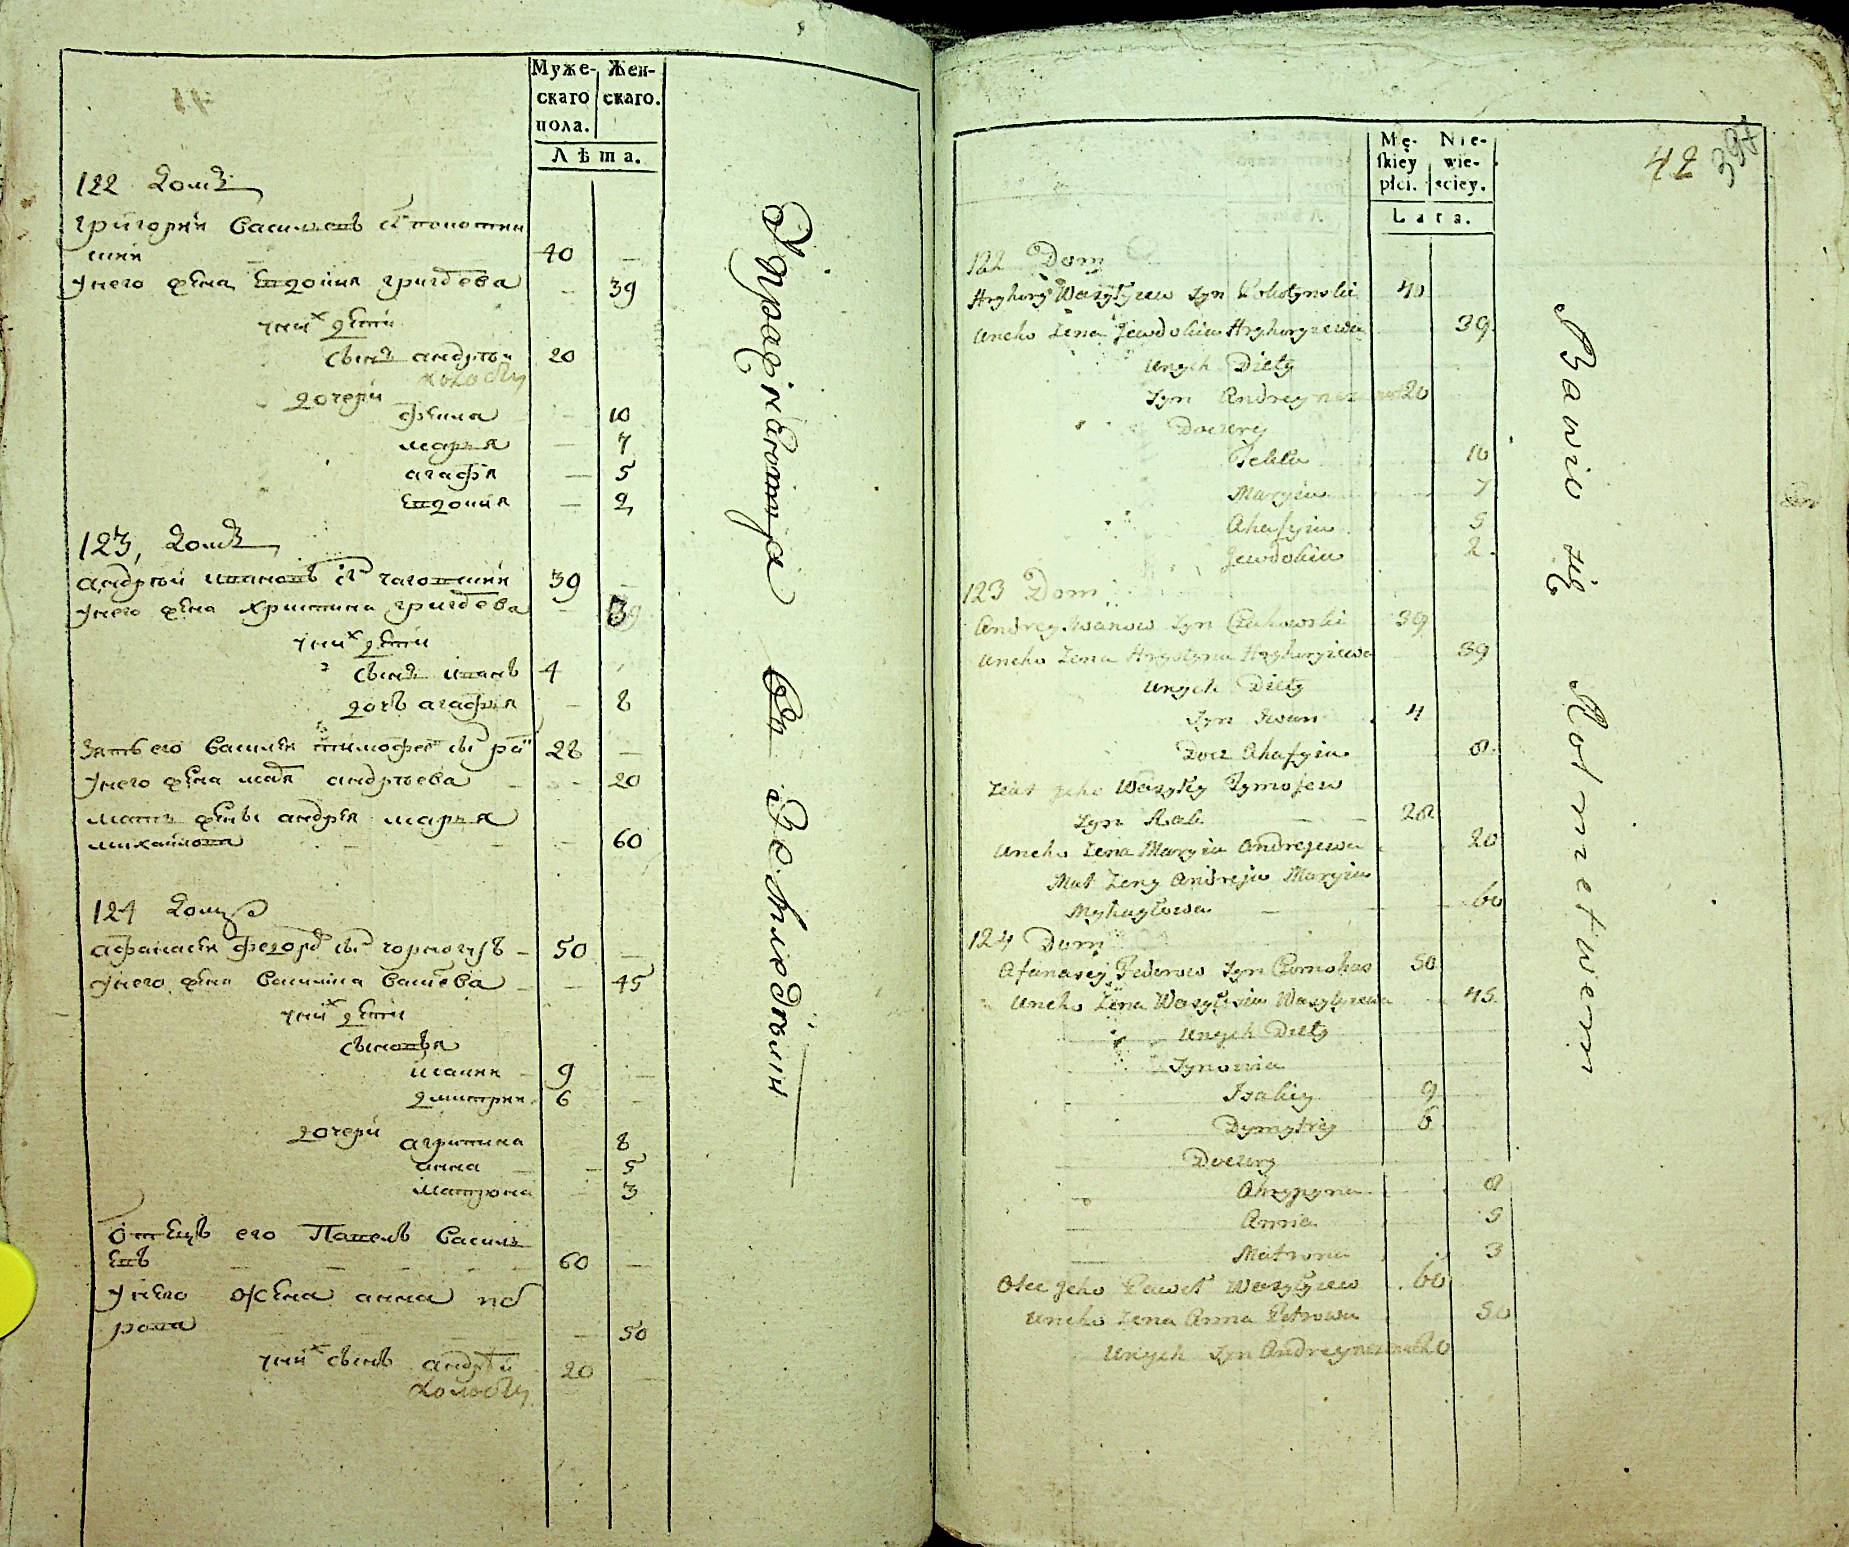 Муже- Жен-
скаго скаго.
пола.
Лѣта.
122 домъ
григорий Василевъ сн
ский 40 —
у него жена Евдокия григорева — 39
у них дети
сынъ андрей 20
холосты
дочери
Фекла — 10
марья — 7
агафия — 5
Евдокия — 2
123, домъ
андрей ивановъ сн чаговский 39 —
у него жена христина григорева — 39
у них дети
сынъ иванъ 4
дочь агафия — 8
зять его василий тимофеев сн 28 —
у него жена марья андреева — 20
мать жены андрея марья
михайлова — 60
124 домъ
афанасий федоров сн 50 —
у него жена Василиса Василева — 45
у них дети
сыновья
исакий 9 —
дмитрий 6 —
дочери агрипина 8
анна — 5
матрона — 3
отецъ его Павелъ Василь
евъ 60 —
у него жена анна пет
рова — 50
у них сынъ андрей 20
холосты
упражняются въ земледѣлии
42
397
Mę- Nie-
skiey wie-
płci. sciey.
Lata.
122 Dom
Hryhory Wasylyiew syn Pokotynski 40
Uneho Zena Jewdokia Hryhoryiewa 39
Unych Diety
Syn Andrey 20
Doczery
Tekla 10
Maryia 7
Ahafyia 5
Jewdokia 2
123 Dom
Andrey Iwanow Syn Czahowski 39
Uneho Zena Hrystyna Hryhoryiewa 39
Unych Diety
Syn Iwan 4
Docz Ahafyia 8
Ziat jeho Wasyley Tymofiew
Syn Rab 28
Uneho Zena Maryia Andrejewa 20
Mat Zeny Andreja Maryia
Myhayłowa 60
124 Dom
Afanasiy Fedorow Syn Czornohuz 50
Uneho Zena Wasylisia Wasylyiewa 45
Unych Diety
Synowia
Isakiy 9
Dymytriy 6
Doczery
Ahrypyna 8
Anna 5
Matrona 3
Otec jeho Paweł Wasylyiew 60
Uneho Zena Anna Petrowa 50
Unych Syn Andrey 20
Bawio się Rolnictwem